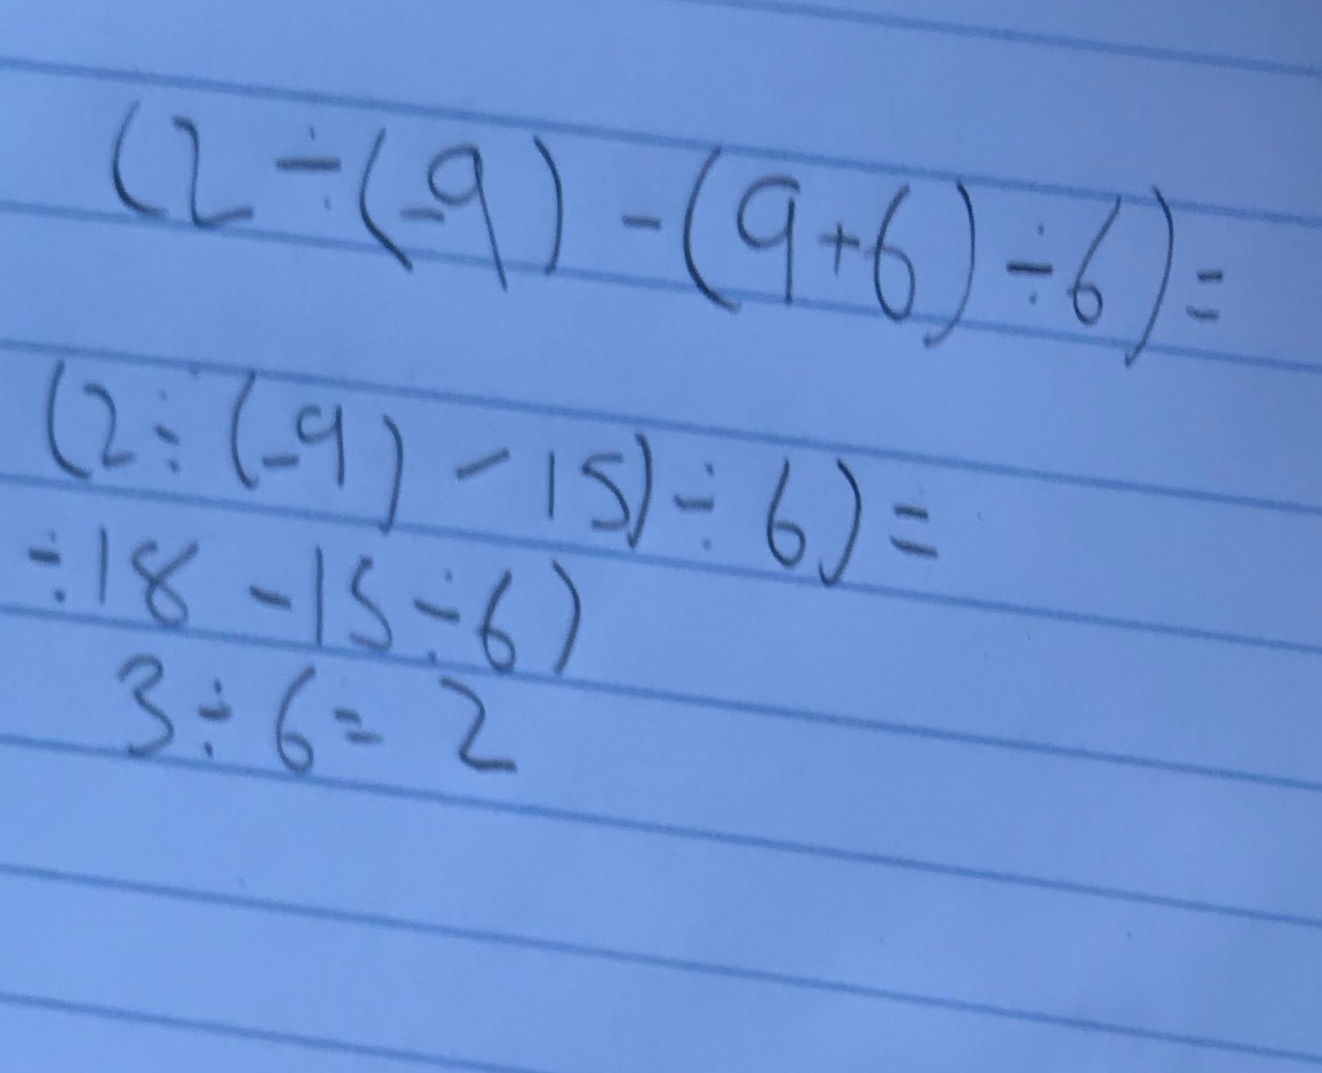 (2 ÷ (-9) - (9+6) ÷ 6) =
(2 ÷ (-9) - 15) ÷ 6) =
÷ 18 - 15 ÷ 6)
3 ÷ 6 = 2